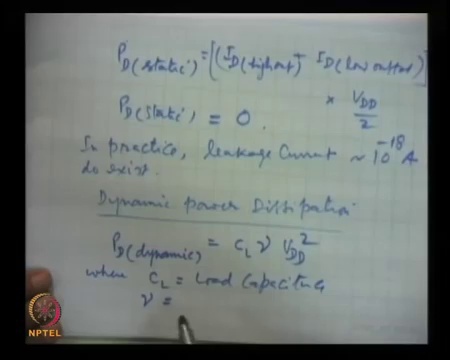 P_D(static) = [(I_D(highout) + I_D(low output)]
× V_DD/2
P_D(static) = 0.
In practice, leakage current ~ 10^-18 A
do exist.
Dynamic power Dissipation
P_D(dynamic) = C_L ν V_DD^2
where C_L = Load Capacitance
ν =
NPTEL